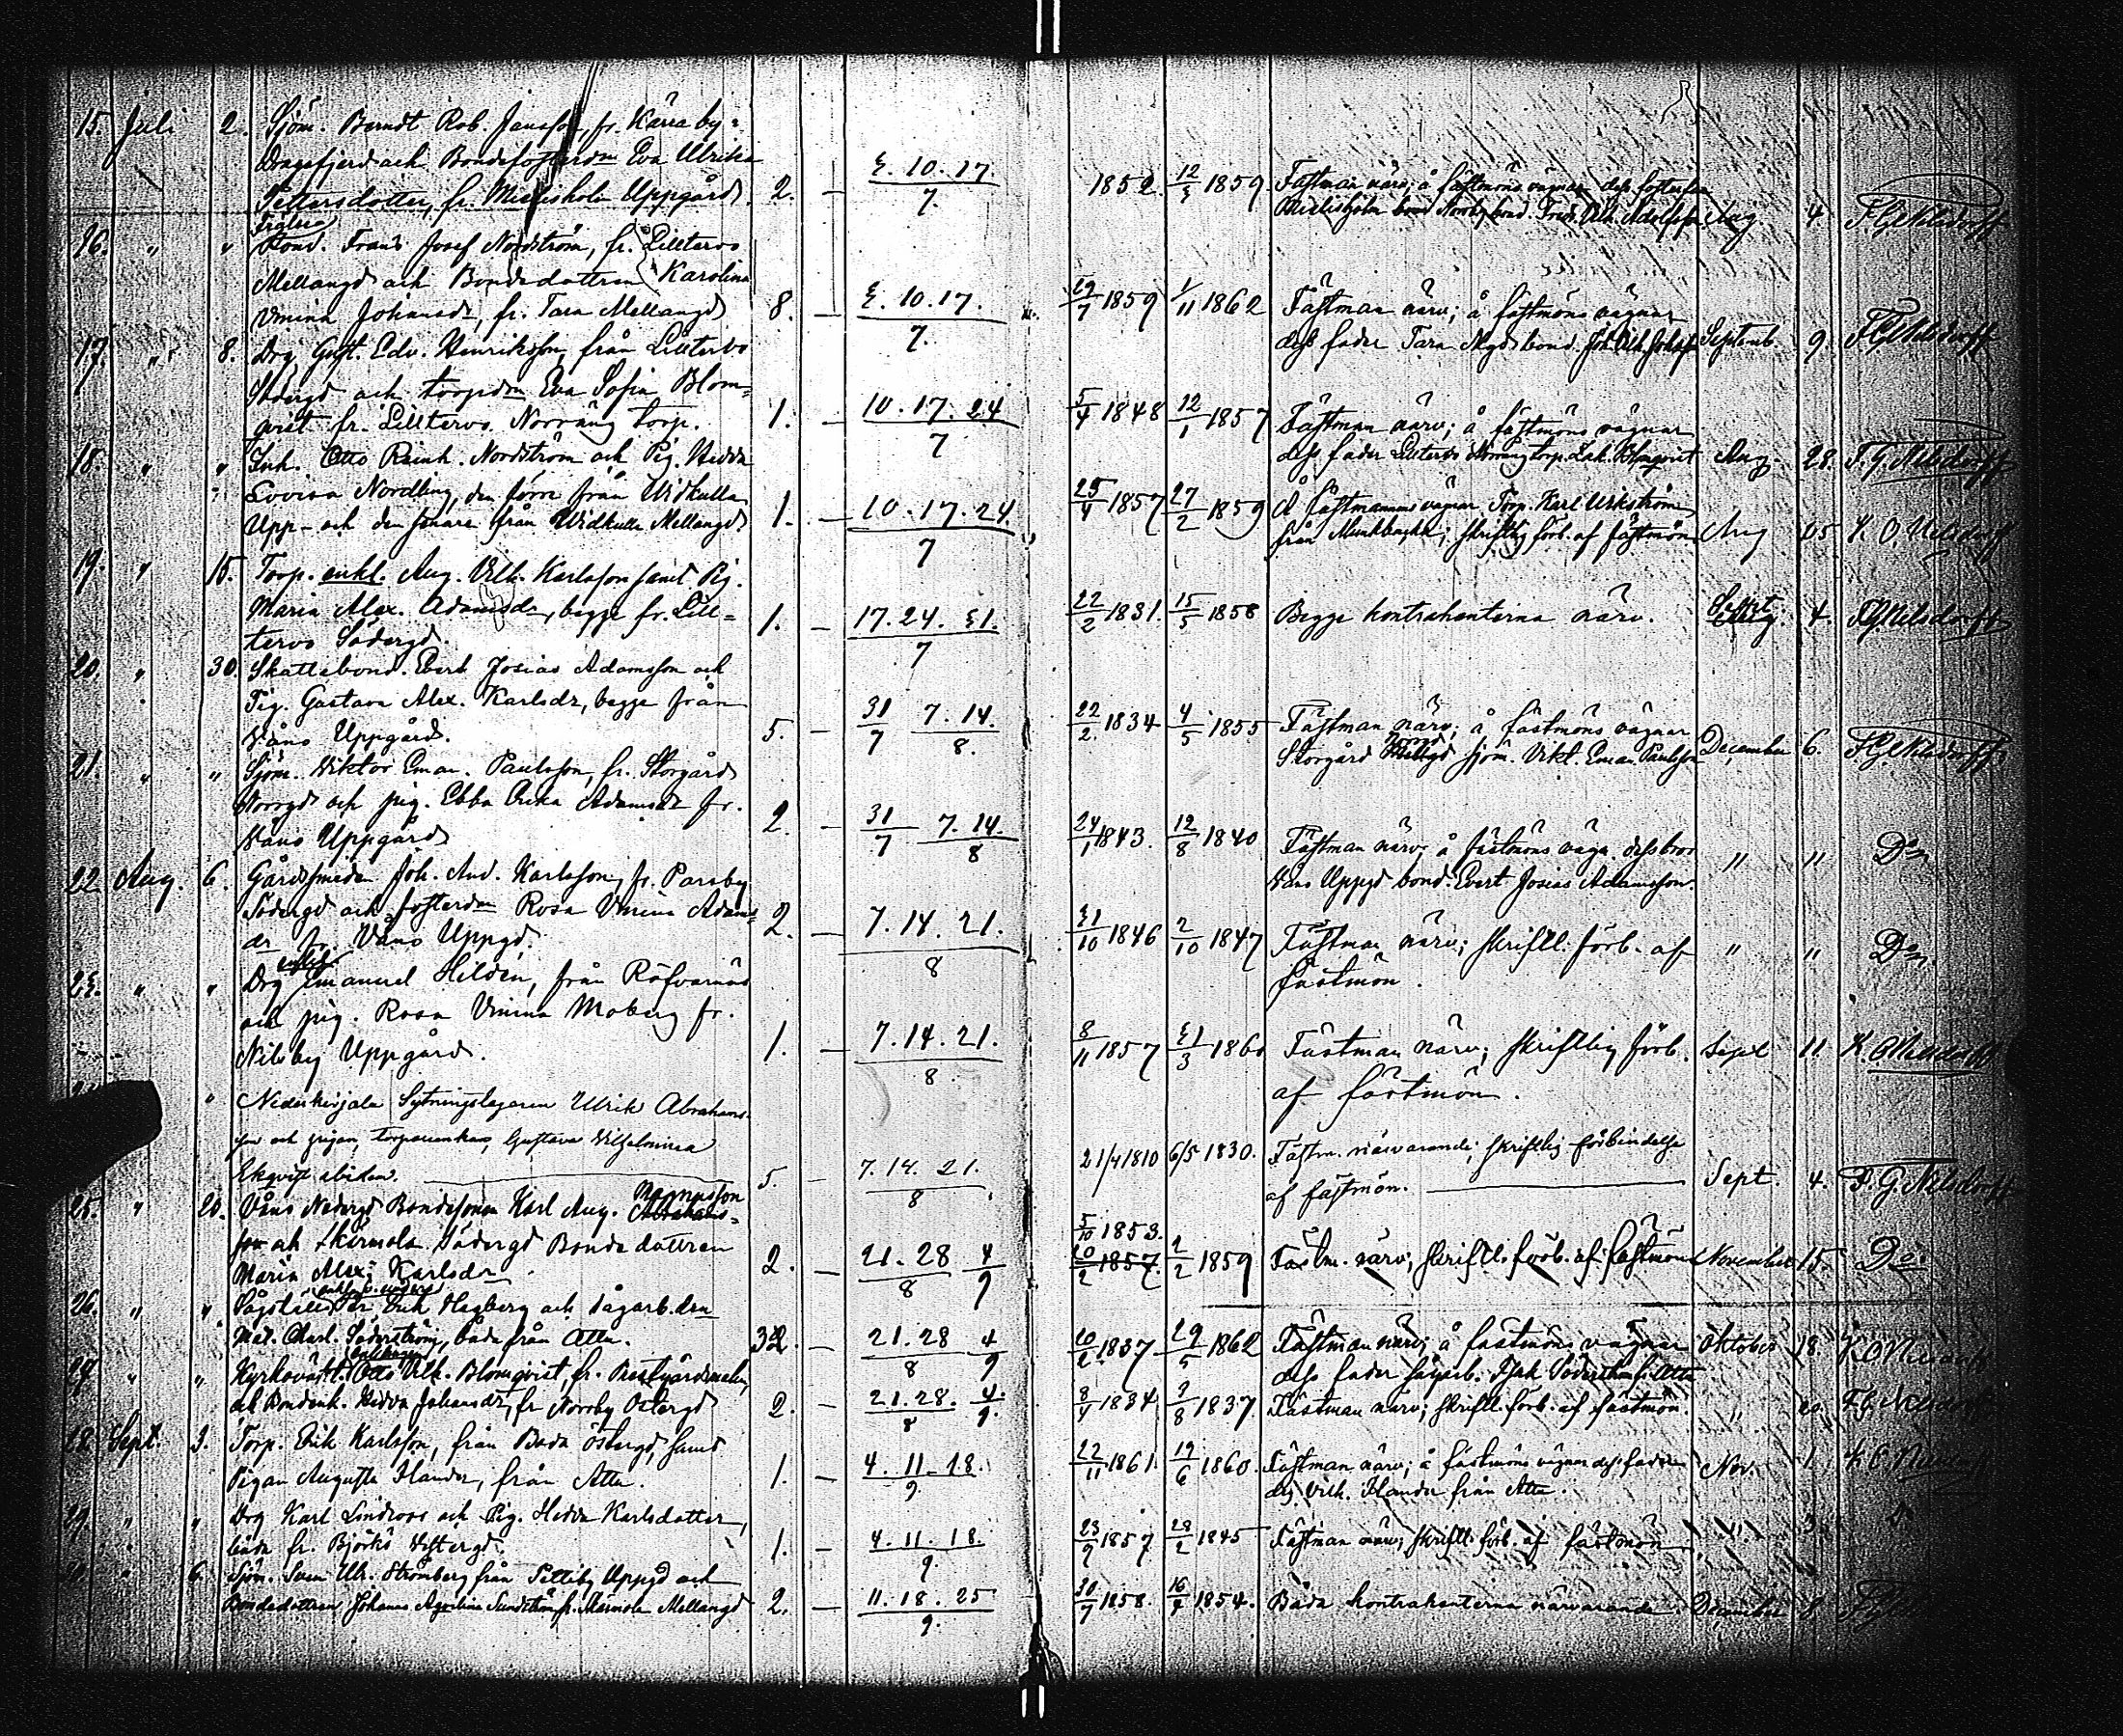 15. Juli 2. Sjöm. Berndt Rob. Jansson, fr. Kärra by,
Dragsfjerd och Bondefosterdrn Eva Ulrika
Pettersdotter, fr. Mielisholm Uppgård. 2. — 3. 10. 17 / 7. 1852. 12/3 1859. Fästman närv; å fästmöns vägnar dess fosterfar
Mielisholm Norrby bond. Fredr. Vilh. Adolfsson Aug 4. F. G. Nelsdorff
16. " " Bond. Frans Josef Nordström, fr. Lilltervo
Mellangd och Bondedottren Karolina
Vmina Johansdr, fr. Tara Mellangd 8. — 3. 10. 17. / 7. 29/7 1859 1/11 1862 Fästman närv; å fästmöns vägnar
dess fader Tara Mgds bond. Joh. Vilh. Johansson Septemb. 9. F. G. Nelsdorff
17. " 8. Drg Gust. Edv. Henriksson från Lilltervo
Södergd och torpdrn Eva Sofia Blom=
qvist fr. Lilltervo Norräng torp. 1. — 10. 17. 24 / 7 5/4 1848 12/1 1857 Fästman närv; å fästmöns vägnar
dess fader Lilltervo Norräng torp. Zak. Blomqvist Aug. 28. F. G. Nelsdorff
18. " " Inh. Otto Reinh. Nordström och Pig. Hedda
Lovisa Nordling, den förre från Widkulla
Upp- och den senare från Widkulla Mellangd 1. — 10. 17. 24. / 7 25/4 1857 27/2 1859 Å fästmannens vägnar Torp. Karl Wikström
från Munkbackka; skriftlig förb. af fästmön Aug 25 K. O. Nelsdorff
19. " 15. Torp. enkl. Aug. Vilh. Karlsson samt Pig.
Maria Alex. Adamsdr, begge fr. Lill=
tervo Södergd. 1. — 17. 24. 31. / 7 22/2 1831. 15/5 1858 Begge kontrahenterna närv. Sept. 4. F. G. Nelsdorff
20. " 30. Skattebond. Evert Josias Adamsson och
Pig. Gustava Alex. Karlsdr, begge från
Våno Uppgård. 5. — 31/7 7. 14. / 8. 22/2. 1834 4/5 1855 Fästman närv; å fästmöns vägnar
Storgård Norrgd sjöm. Vikt. Eman. Paulsson December 6. F. G. Nelsdorff
21. " " Sjöm. Viktor Eman. Paulsson, fr. Storgård
Norrgd och pig. Ebba Erika Adamsdr fr.
Våno Uppgård 2. — 31/7 7. 14. / 8 24/1 1843. 12/8 1840 Fästman närv; å fästmöns vägn. dess bror
Våno Uppgd bond. Evert Josias Adamsson. " " Do
22. Aug. 6. Gårdssmeden Joh. And. Karlsson, fr. Parsby
Södergd och fosterdrn Rosa Vmina Adams=
dr fr. Våno Uppgd. 2. — 7. 14. 21. / 8 31/10 1846 2/10 1847 Fästman närv; skriftl. förb. af
fästmön. " " Do.
23. " " Drg Emanuel Hildén, från Röfvarnäs
och pig. Rosa Vmina Moberg fr.
Nilsby Uppgård. 1. — 7. 14. 21. / 8. 8/11 1857 31/3 1860 Fästman närv; skriftlig förb.
af fästmön. Sept 11. K. O. Nelsdorff
" Nederkirjala Sytningstagaren Ulrik Abrahams-
son och pigan, torparenkan Gustava Vilhelmina
Ekqvist 5. — 7. 14. 21. / 8. 21/4 1810 6/5 1830. Fästm. närvarande; skriftlig förbindelse
af fästmön. Sept. 4. F. G. Nelsdorff
25. " 20. Våno Nedergd Bondesonen Karl Aug. Magnusson
och Skärmola Södergd Bondedottren
Maria Alex. Karlsdr 2. — 21. 28 / 8 4/9 5/10 1853. 20/2 1857. 2/2 1859 Fästm. närv; skriftl. förb. af fästmön November 15. Do.
26. " " Sågställ. Per Erik Hagberg och sågarb.drn
Mat. Charl. Söderström, båda från Attu. 2. — 21. 28 / 8 4/9 20/2 1837 29/5 1862 Fästman närv; å fästmöns vägnar
dess fader sågarb. Isak Söderström fr. Attu Oktober 18. K. O. Nelsdorff
27. " " Kyrkovakt. Otto Vilh. Blomqvist, fr. Prestgårdsmalm,
och Bondenk. Hedda Johansdr, fr Norrby Östergd 2. — 21. 28. / 8 4./9. 8/4 1834 3/8 1837. Fästman närv; skriftl. förb. af fästmön. " 20. F. G. Nelsdorff
28. Sept. 3. Torp. Erik Karlsson, från Boda Östergd, samt
Pigan Augusta Ilander, från Attu. 1. — 4. 11. 18. / 9. 22/11 1861 19/6 1860. Fästman närv; å fästmöns vägnar dess fader
drg Vilh. Ilander från Attu. Nov. 1. K. O.
29. " " Drg Karl Lindroos och Pig. Hedda Karlsdotter,
båda fr. Björkö Vestergd. 1. — 4. 11. 18. / 9. 23/9 1857 28/2 1845 Fästman närv; skriftl. förb. af fästmön " 3.
" 6. Sjöm. Sven Ulr. Strömberg från Pettiby Uppgd och
Bondedottren Johanna Agselina Sundström fr. Mármola Mellangd 2. — 11. 18. 25 / 9. 30/7 1858. 16/9 1854. Båda kontrahenterna närvarande. December 8.